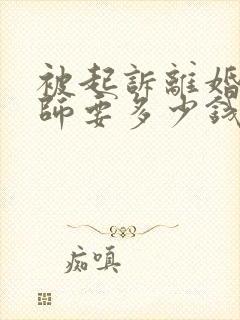 被起訴離婚
師要多少錢
痴嗔